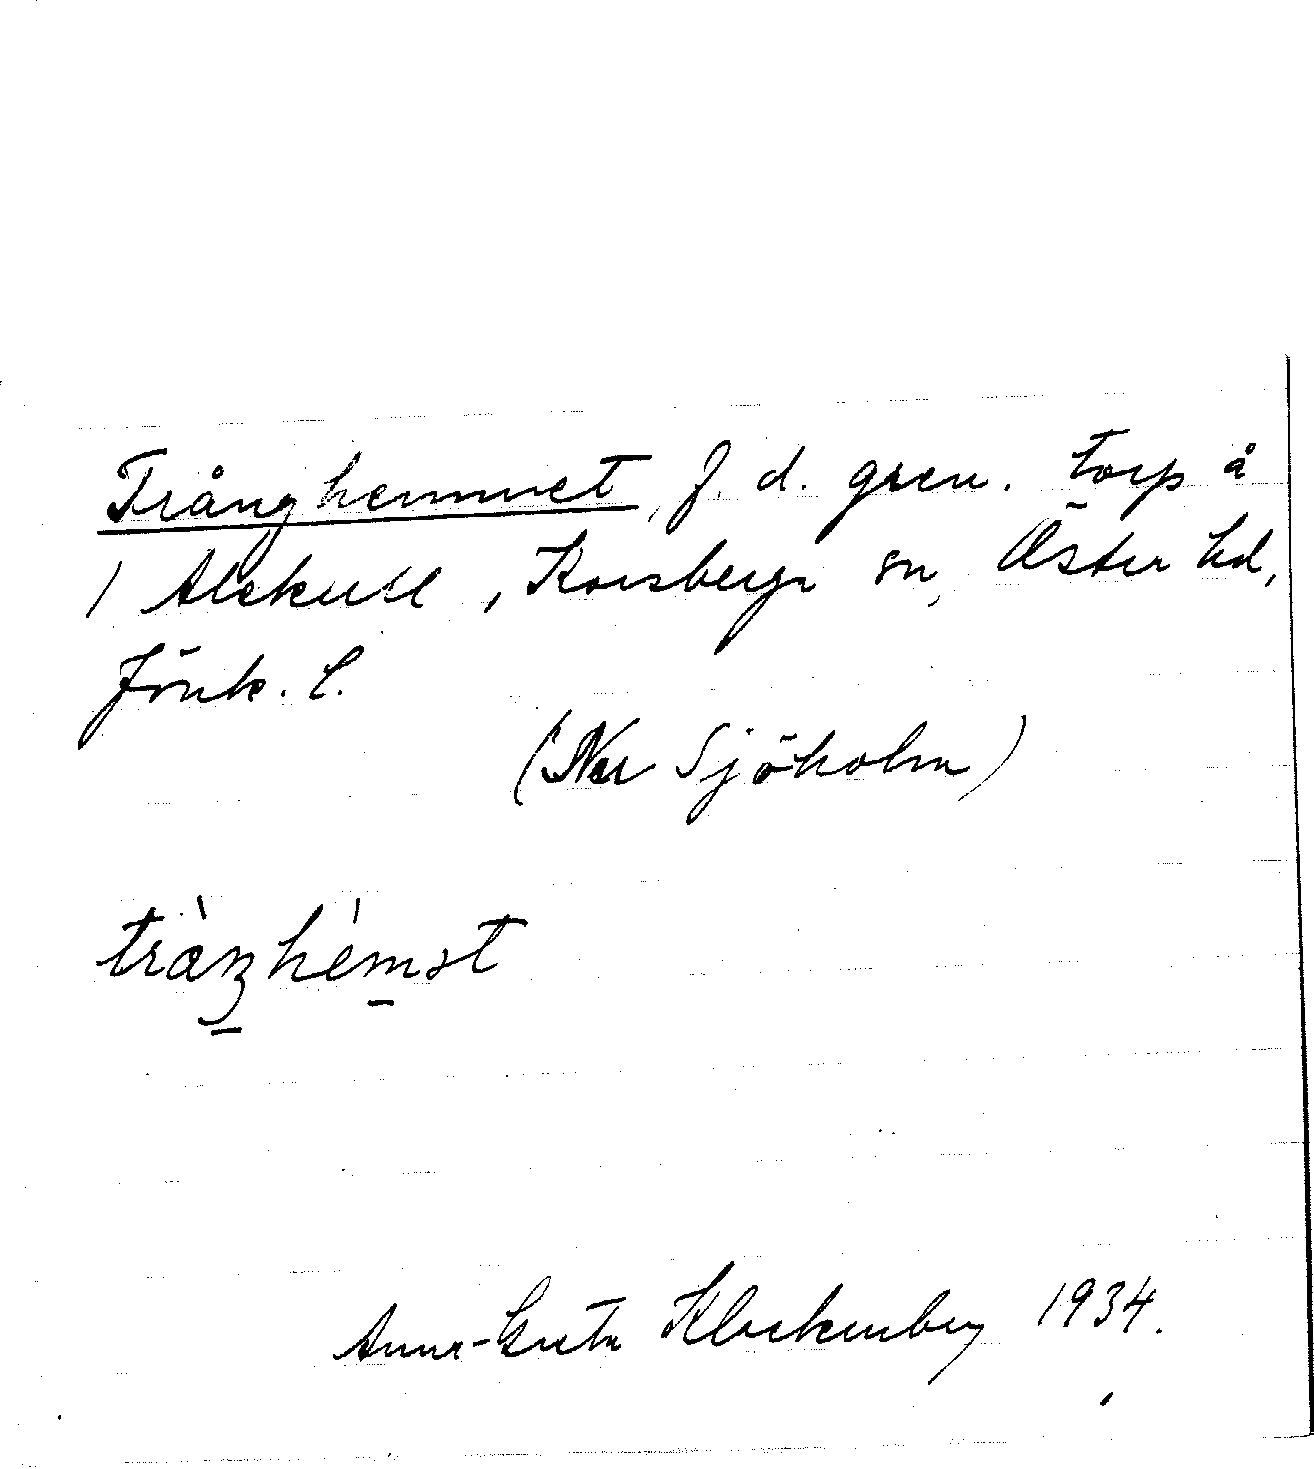 Trånghemmet, f. d. gren. torp å
1 Alekull, Korsberga sn, Östra hd,
Jönk. l.
(Nu Sjöholm)
tràŋhémət
Anna-Greta Klockenberg 1934.